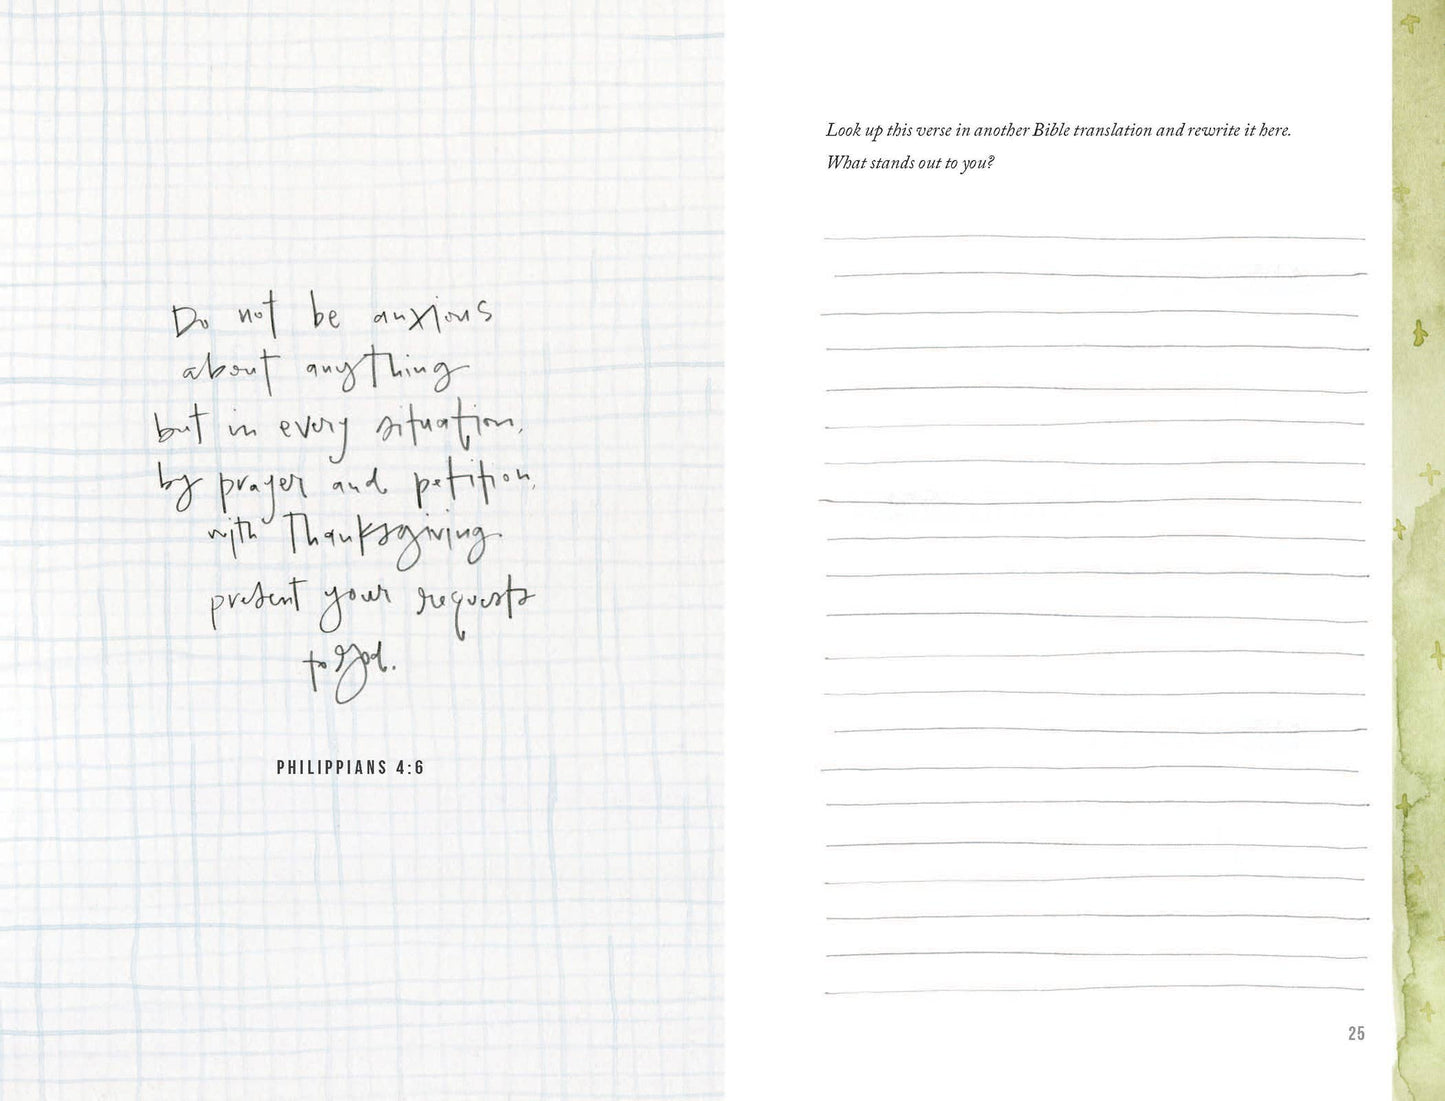 Do not be anxious
about anything
but in every situation,
by prayer and petition,
with thanksgiving.
present your requests
to God.
PHILIPPIANS 4:6
Look up this verse in another Bible translation and rewrite it here.
What stands out to you?
25